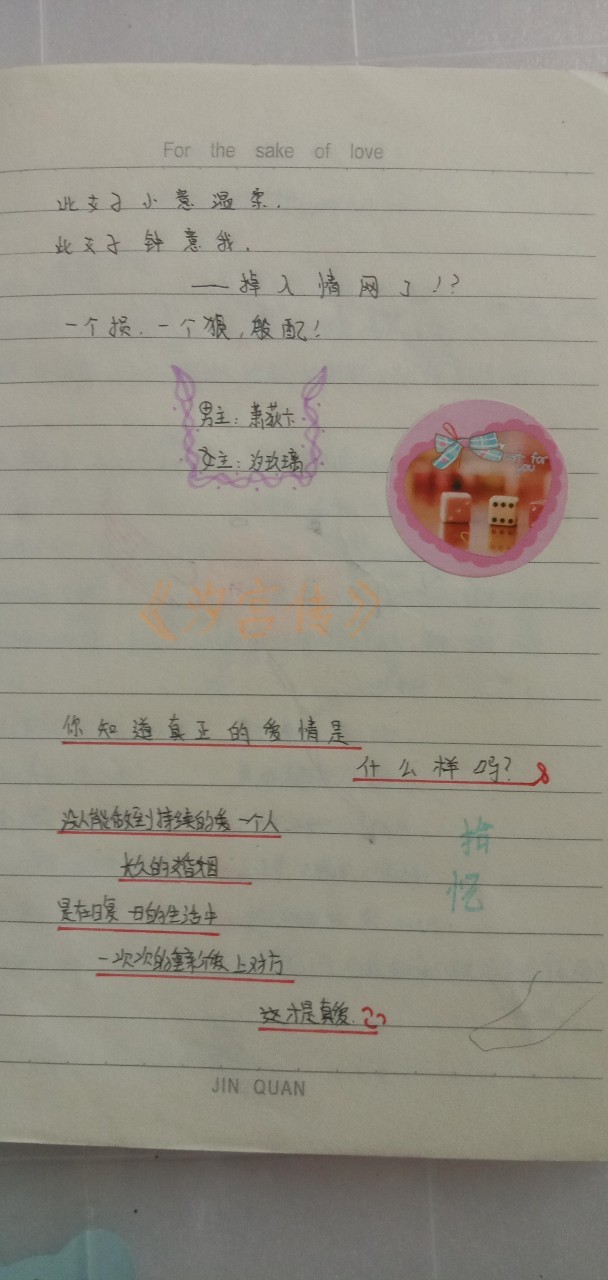 For the sake of love
此女子小意温柔.
此女子钟意我.
——掉入情网了!?
一个损.一个狠,般配!
男主:萧荻卞
女主:汐玫璃
for
you
《汐宫传》
你知道真正的爱情是
什么样吗?
没人能做到持续的爱一个人
长久的婚姻
是在日复一日的生活中
一次次的重新爱上对方
这才是真爱.
拾
忆
JIN QUAN